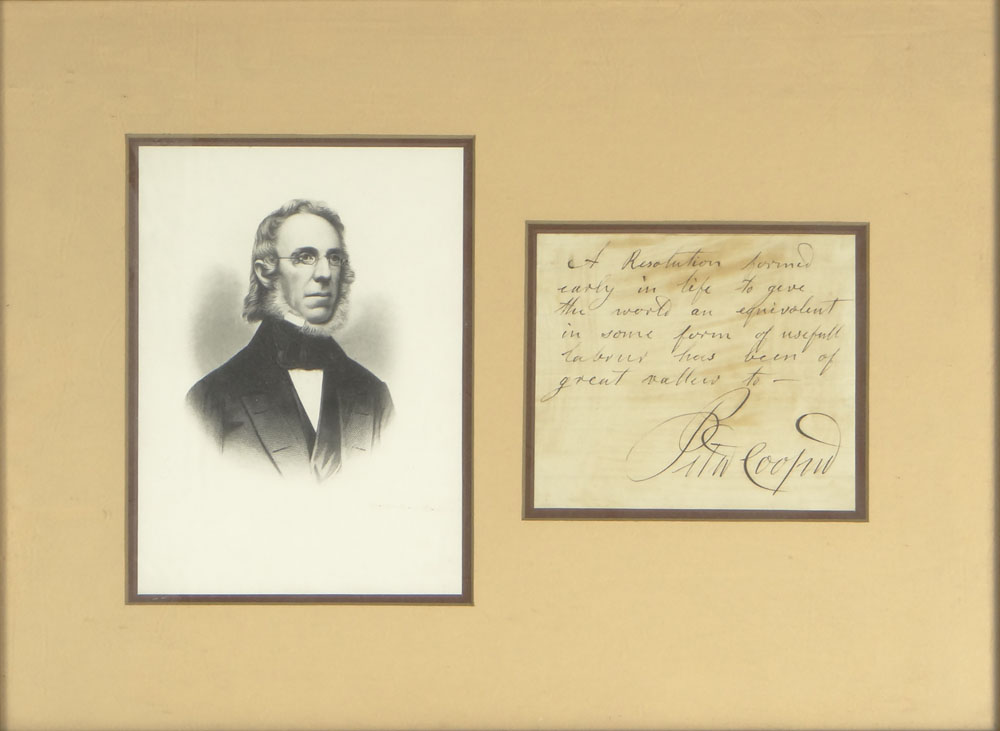 A Resolution formed
early in life to give
the world an equivalent
in some form of usefull
labour has been of
great vallue to —
Peter Cooper